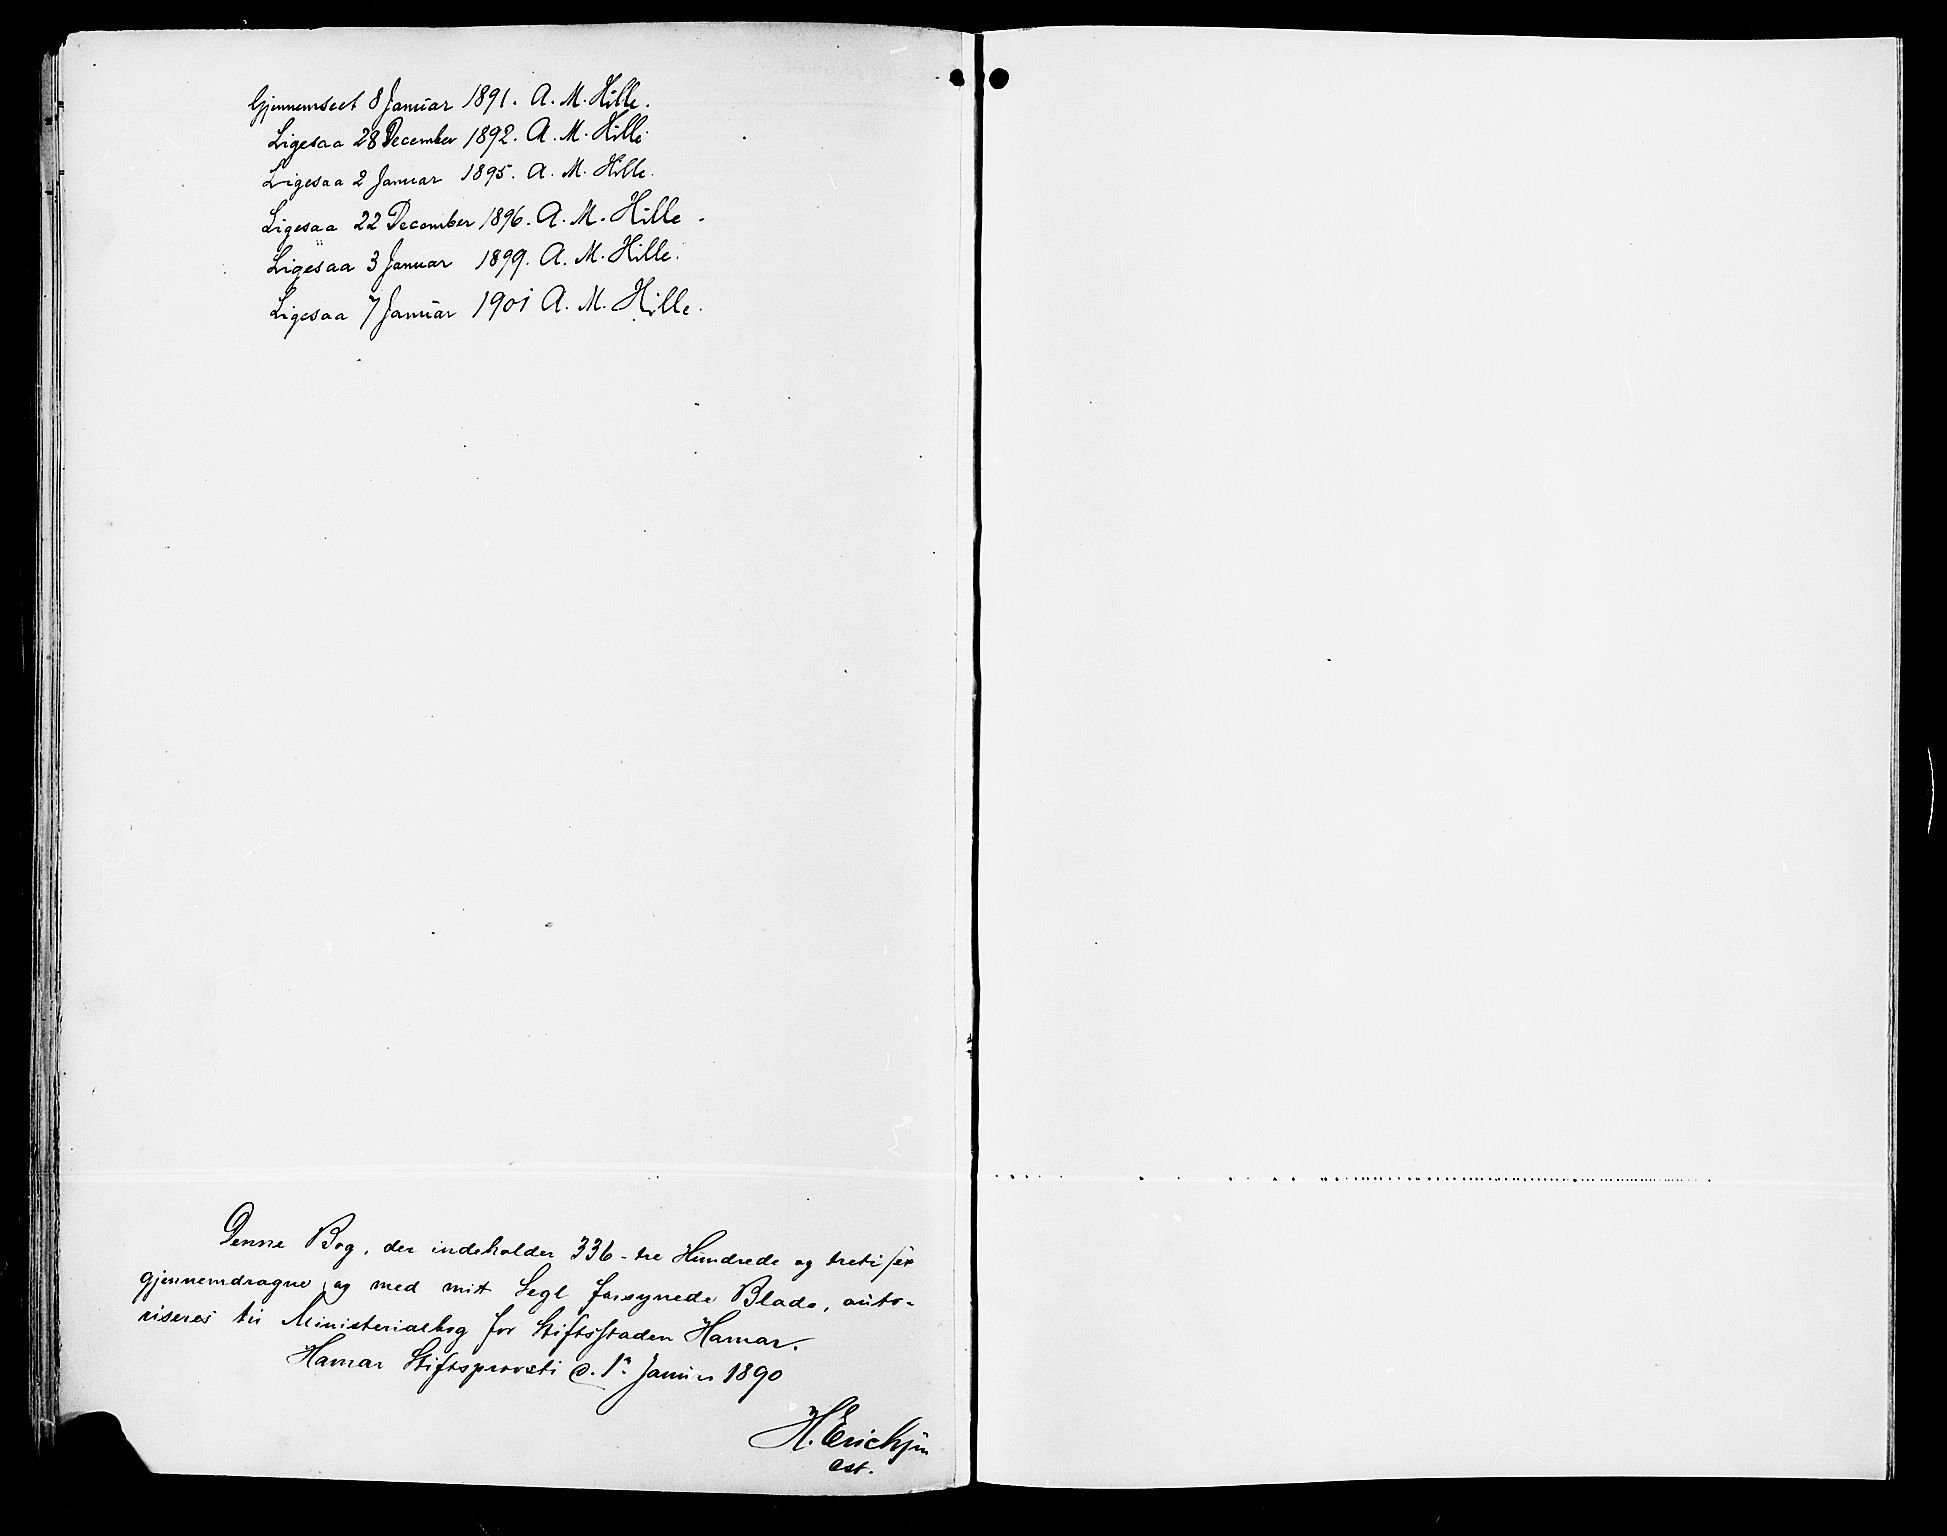 Gjennemseet 8 Januar 1891. A. M. Hille.
Ligesaa 28 December 1892. A. M. Hille
Ligesaa 2 Januar 1895. A. M. Hille.
Ligesaa 22 December 1896. A. M. Hille.
Ligesaa 3 Januar 1899. A. M. Hille.
Ligesaa 7 Januar 1901 A. M. Hille.
Denne Bog, der indeholder 336 - tre Hundrede og treti sex
gjennemdragne og med mit Segl forsynede Blade, auto-
riseres til Ministerialbog for Stiftsstaden Hamar.
Hamar Stiftsprovsti d. 1ste Januar 1890
H. Erichsen
cst.